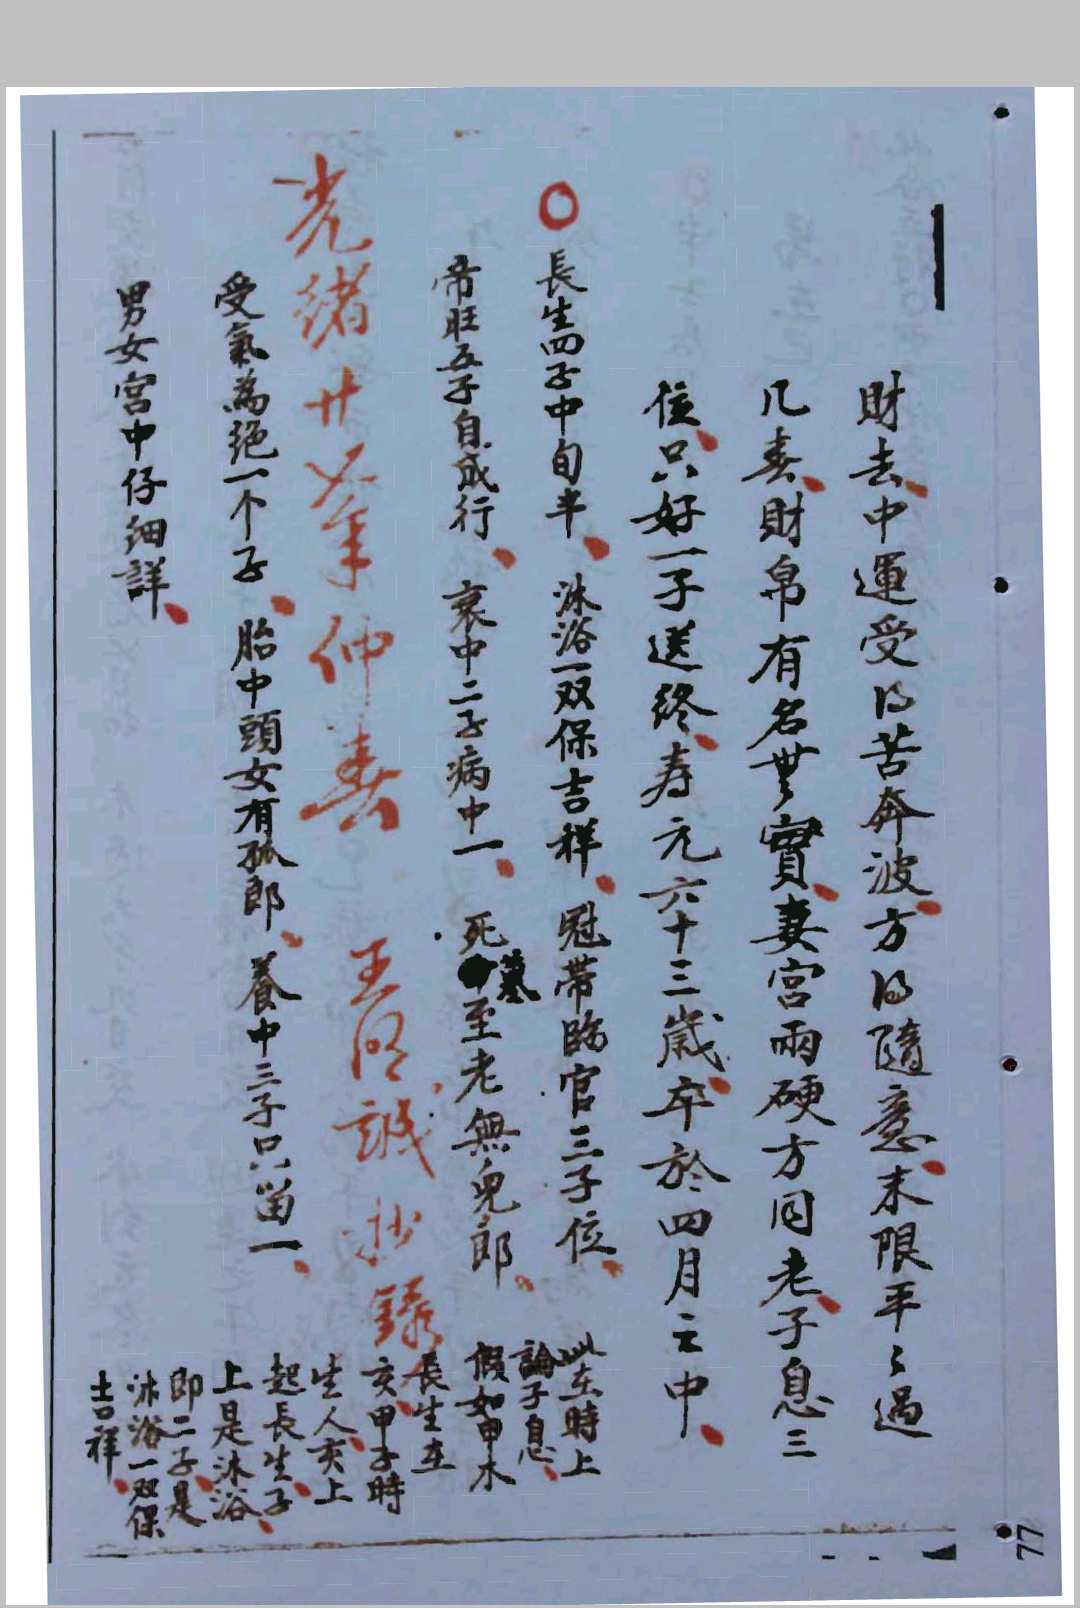 財去中運受得苦奔波方得隨意末限平〻過
几春財帛有名無實妻宮兩硬方同老子息三
位只好一子送終寿元六十三歲卒於四月之中
〇長生四子中旬半 沐浴一双保吉祥 冠带臨官三子位
帝旺五子自成行 衰中二子病中一 死墓至老無兒郎
光緒廿〤年仲春 王明誠抄錄
受氣為绝一个子 胎中頭女有孤郎 養中三子只留一
男女宮中仔细詳
此在時上
論子息
假如甲木
長生在
亥甲子時
生人亥上
起長生子
上是沐浴
即二子是
沐浴一双保
吉祥
77